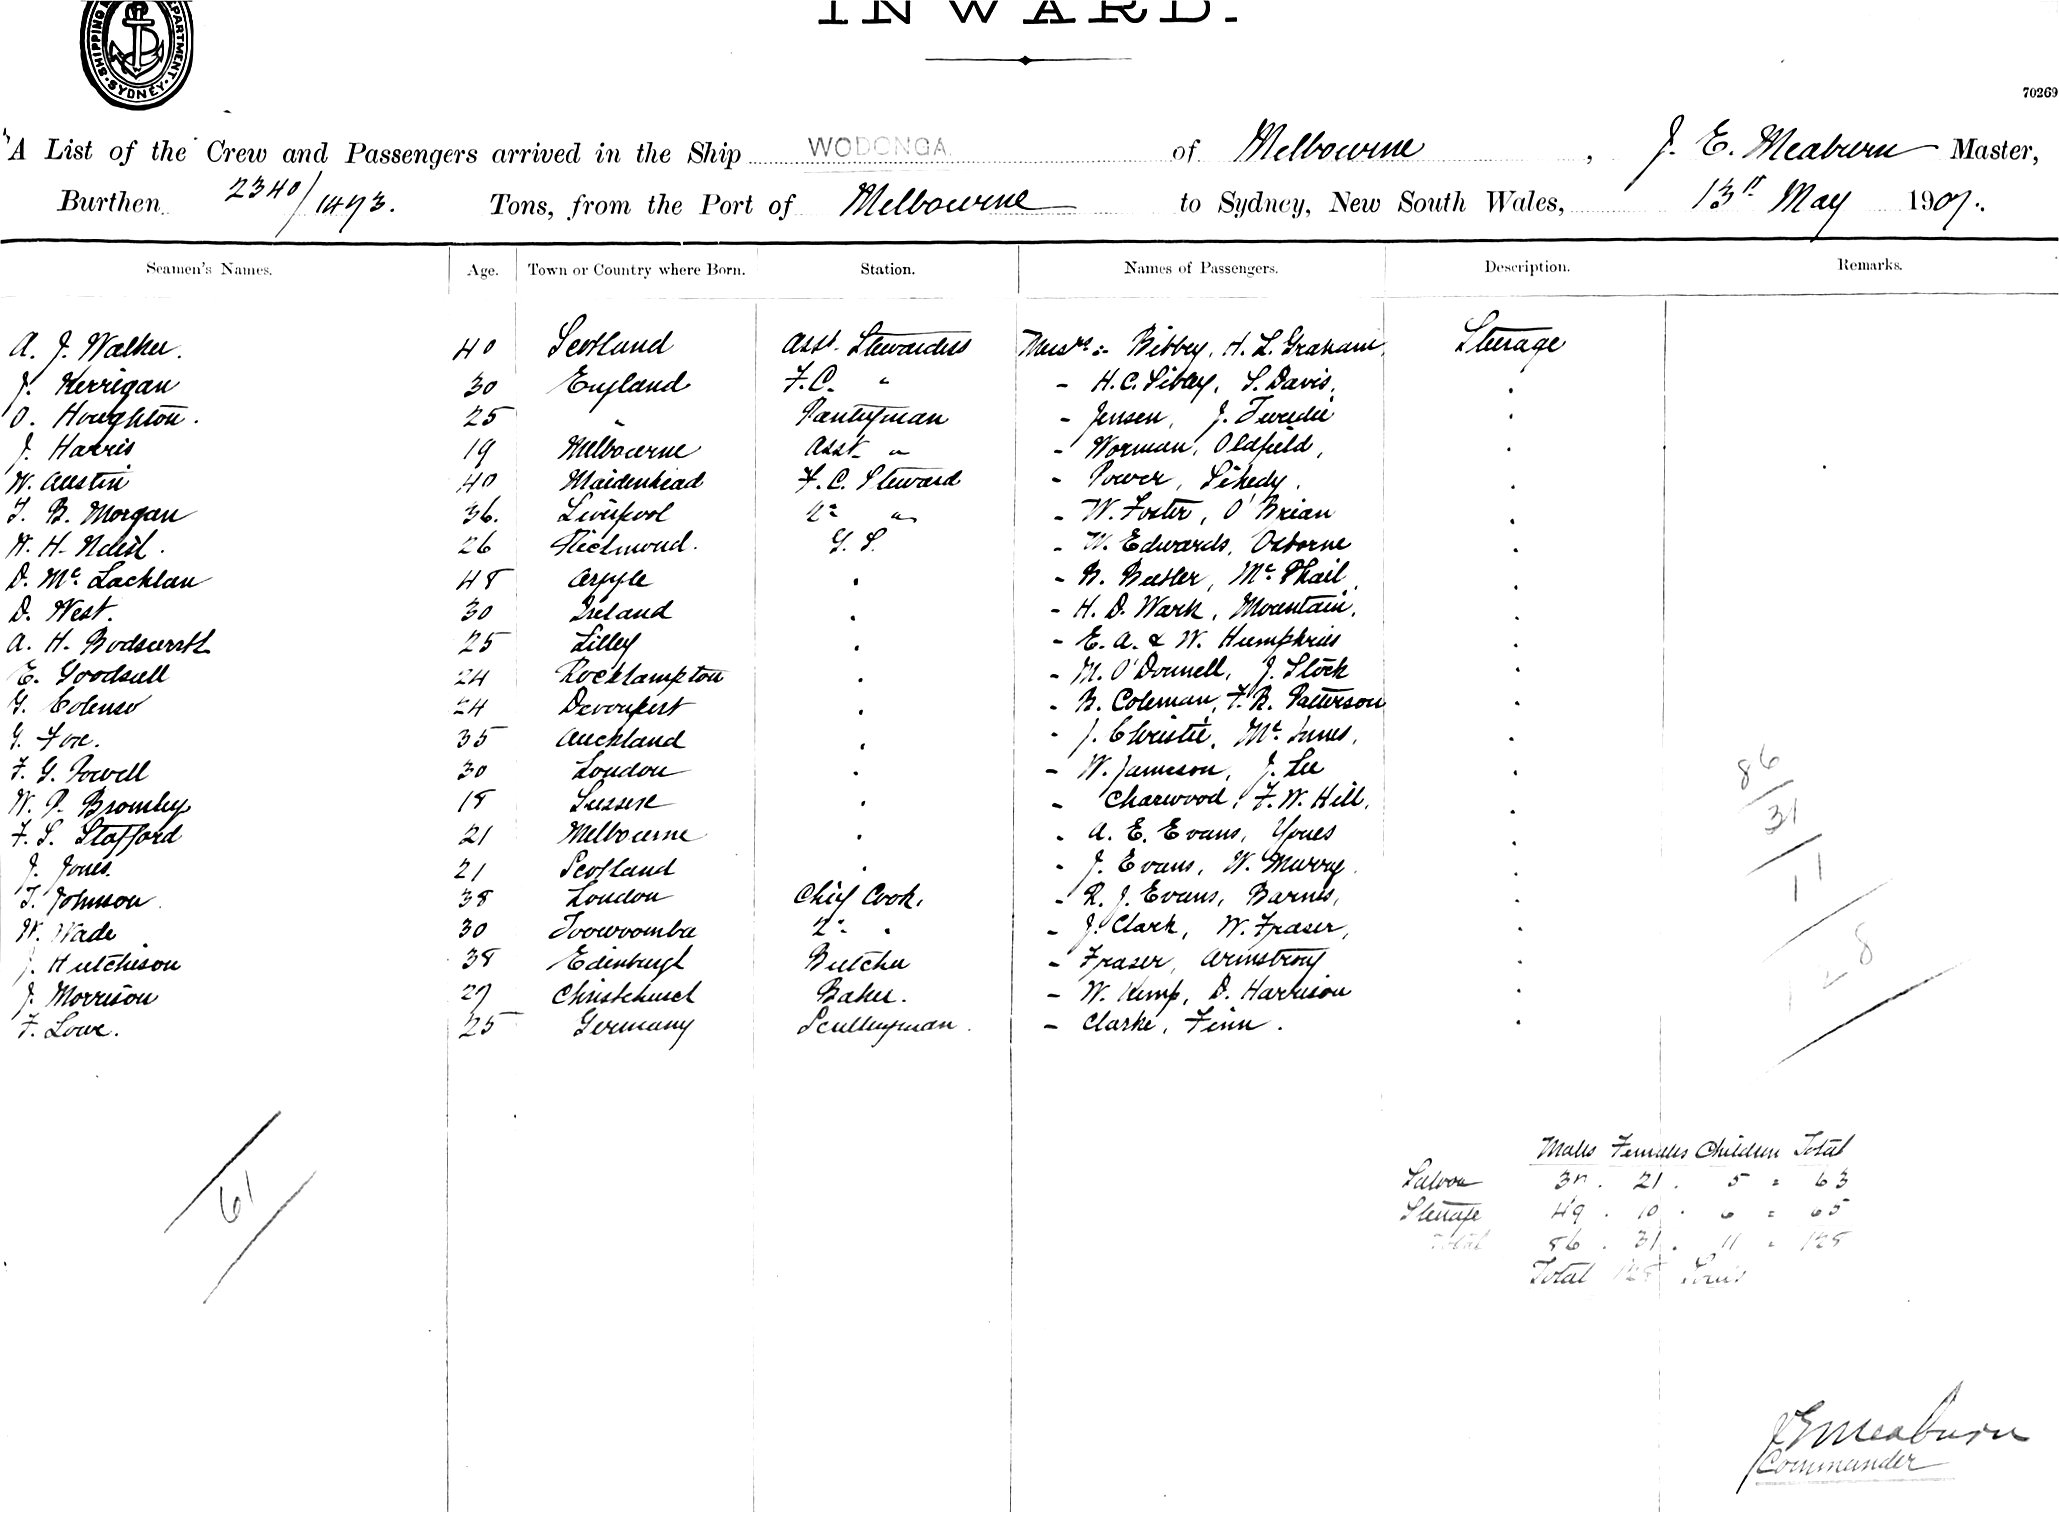 INWARD.
SHIPPING DEPARTMENT SYDNEY
70269
A List of the Crew and Passengers arrived in the Ship WODONGA of Melbourne, J. E. Meaburn Master,
Burthen 2340/1493. Tons, from the Port of Melbourne to Sydney, New South Wales, 13th May 1907.
Seamen's Names. Age. Town or Country where Born. Station. Names of Passengers. Description. Remarks.
A. J. Walker. 40 Scotland Asst. Stewardess Messrs:- Bibbey, H. L. Graham, Steerage
J. Kerrigan 30 England F.C. " - H. C. Sibley, S. Davis,
O. Houghton. 25 " Pantryman - Jensen, J. Tweedie
J. Harris 19 Melbourne Asst. " - Worman, Oldfield,
W. Austin 40 Maidenhead F. C. Steward - Power,
T. B. Morgan 36. Liverpool 2nd " - W. Foster, O'Brian
W. H. 26 Richmond. G. S. - W. Edwards, Osborne
D. McLachlan 48 Argyle - B. Butler, McPhail,
D. West. 30 Ireland - H. D. Wark, Mountain,
A. H. Bodsworth 25 Lilley - E. A. & W. Humphries
E. Goodsall 24 Rockhampton - M. O'Donnell, J. Stock
G. Colenso 24 Devonport - B. Coleman, F. R. Patterson
G. Fox. 35 Auckland - J. Christie, McInnes,
F. G. Powell 30 London - W. Jameson, J. Lee
W. P. Bromley 18 Sussex - Charwood, F. W. Hill,
F. S. Stafford 21 Melbourne - A. E. Evans, Jones
J. Jones. 21 Scotland - J. Evans, W. Murray
T. Johnson 38 London Chief Cook, - R. J. Evans, Barnes,
W. Wade 30 Toowoomba 2nd " - J. Clark, W. Fraser,
J. Hutchison 38 Edinburgh Butcher - Fraser, Armstrong
J. Morrison 27 Christchurch Baker. - W. Kemp, D. Harrison
F. Lowe. 25 Germany Sculleryman. - Clarke, Finn.
86
31
11
128
61
Males Females Children Total
Saloon 37. 21. 5 = 63
Steerage 49. 10. 6 = 65
Total 86. 31. 11 = 128
Total 128 Souls
J E Meaburn
Commander